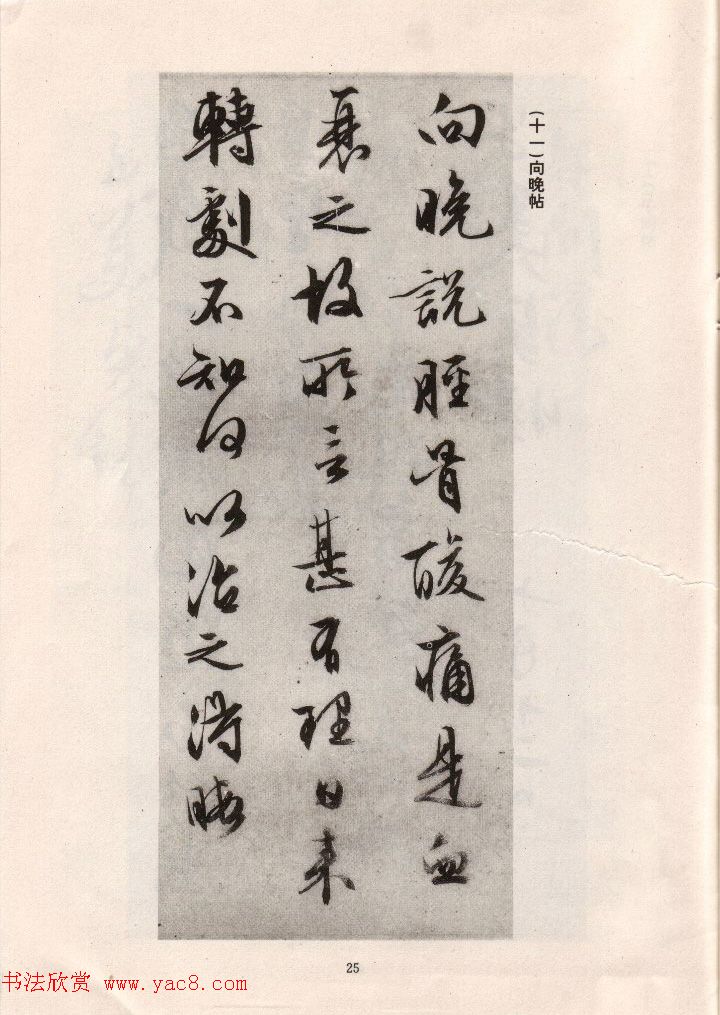 (十一)向晚帖
向晚説脛骨酸痛是血
衰之故所言甚有理日来
轉劇不知何以治之得
25
书法欣赏 www.yac8.com